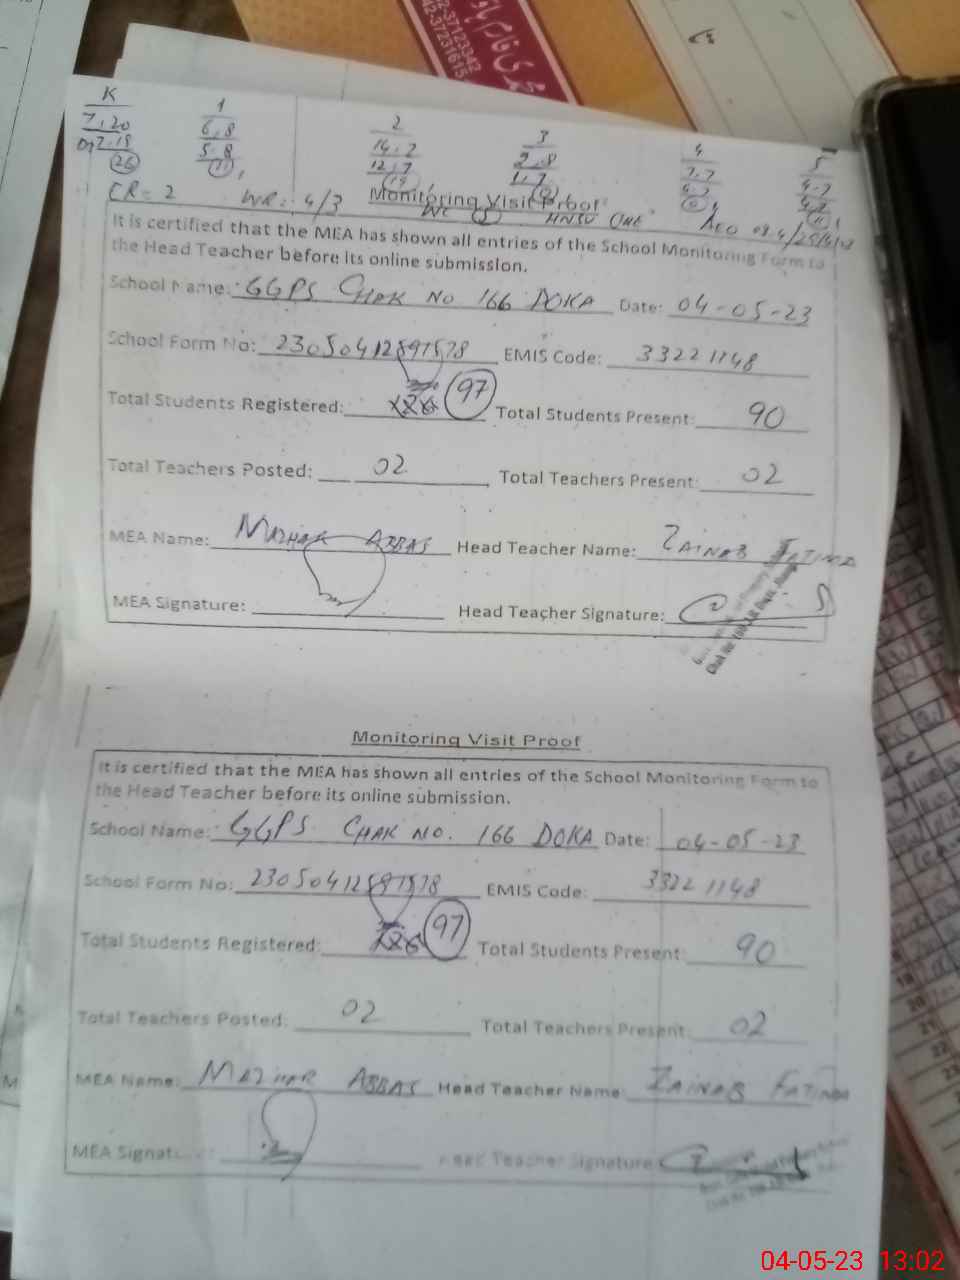 K 1 2 3 4 5
7,20 6,8 14,2 2,8 7,7 4-7
7-19 5-8 12,7 1,7 4-7 4-7
26
CR= 2 WR= 4/3 Monitoring Visit Proof
WC 5 ONE AEO
It is certified that the MEA has shown all entries of the School Monitoring Form to
the Head Teacher before its online submission.
School Name: GGPS CHAK NO 166 DOKA Date: 04-05-23
School Form No: EMIS Code: 33221148
Total Students Registered: 97 Total Students Present: 90
Total Teachers Posted: 02 Total Teachers Present: 02
MEA Name: MAZHAR ABBAS Head Teacher Name: ZAINAB FATIMA
MEA Signature: Head Teacher Signature:
Monitoring Visit Proof
It is certified that the MEA has shown all entries of the School Monitoring Form to
the Head Teacher before its online submission.
School Name: GGPS CHAK NO. 166 DOKA Date: 04-05-23
School Form No: EMIS Code: 33221148
Total Students Registered: 97 Total Students Present: 90
Total Teachers Posted: 02 Total Teachers Present: 02
MEA Name: MAZHAR ABBAS Head Teacher Name: ZAINAB FATIMA
MEA Signature: Head Teacher Signature
04-05-23 13:02